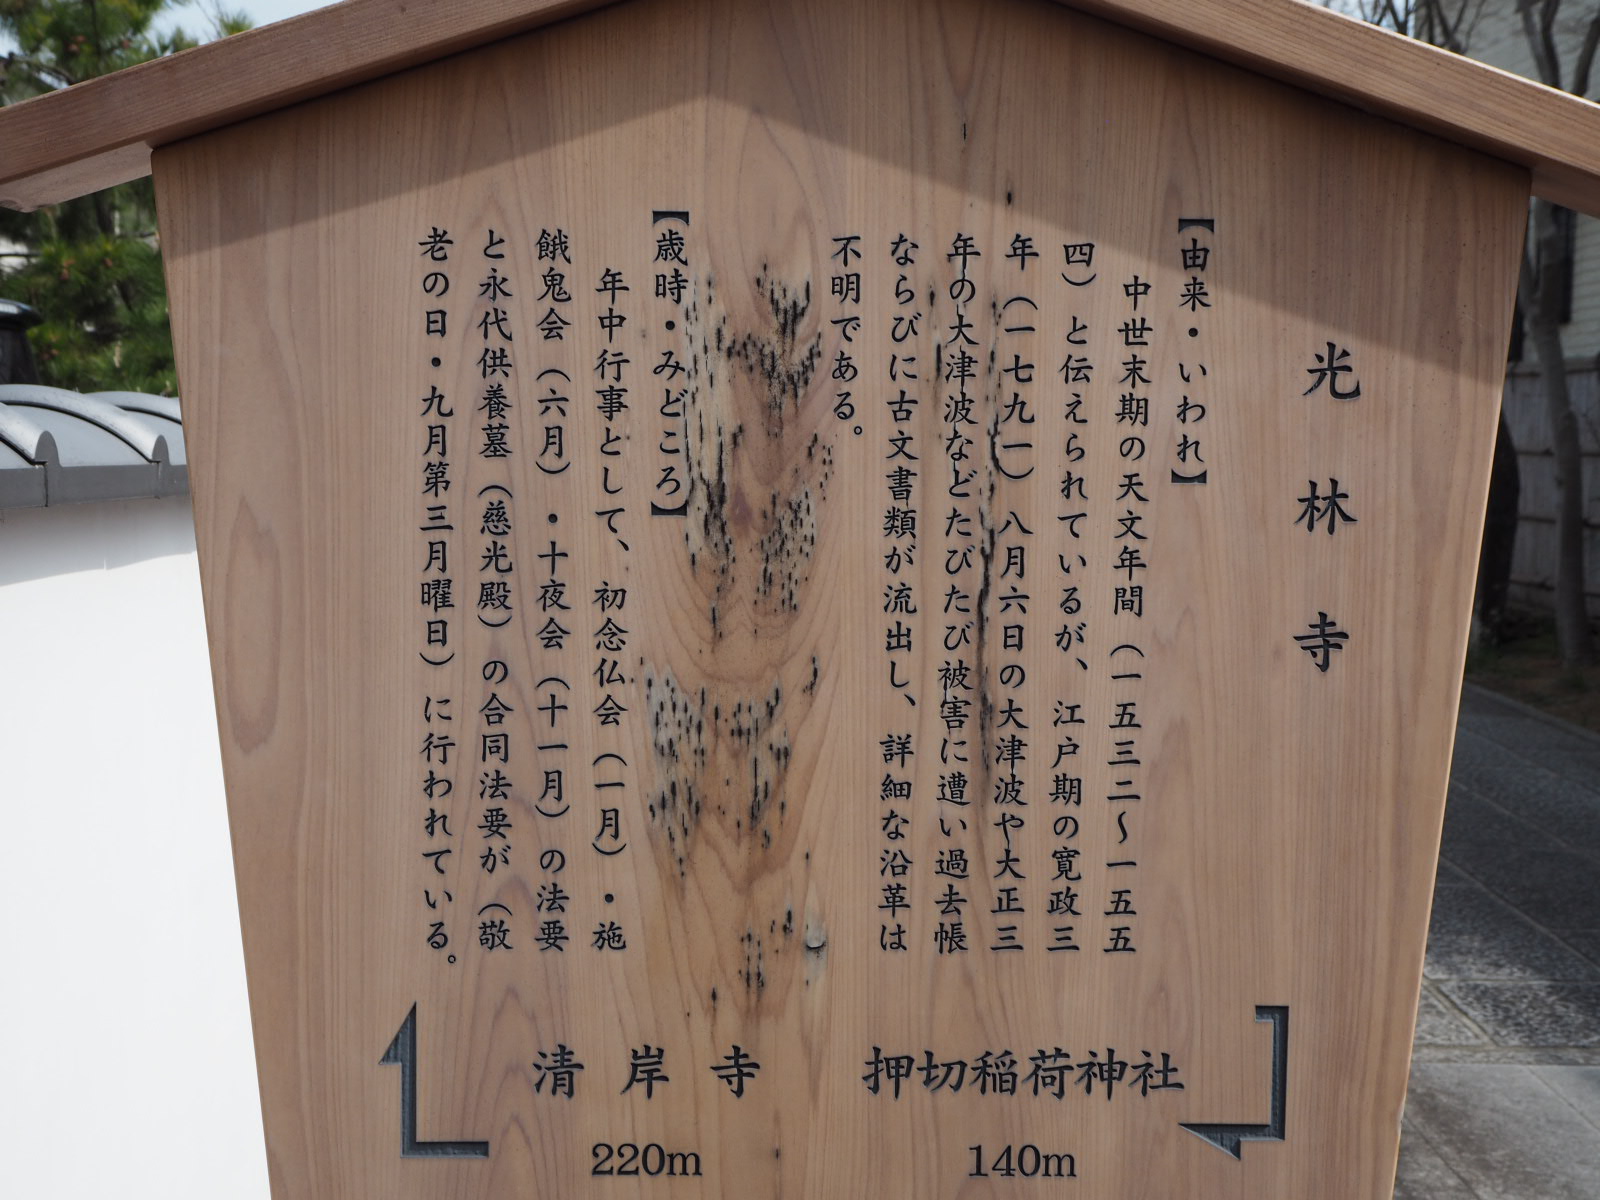 光林寺
【由来・いわれ】
中世末期の天文年間（一五三二〜一五五
四）と伝えられているが、江戸期の寛政三
年（一七九一）八月六日の大津波や大正三
年の大津波などたびたび被害に遭い過去帳
ならびに古文書類が流出し、詳細な沿革は
不明である。
【歳時・みどころ】
年中行事として、初念仏会（一月）・施
餓鬼会（六月）・十夜会（十一月）の法要
と永代供養墓（慈光殿）の合同法要が（敬
老の日・九月第三月曜日）に行われている。
清岸寺 押切稲荷神社
220m 140m